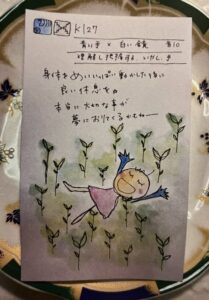 K127
青い手 × 白い鏡 音10
理解し把握する、いかしき
身体をめいいっぱい動かしたら
良い休息を。
本当に大切な事が
夢におりてくるかもね